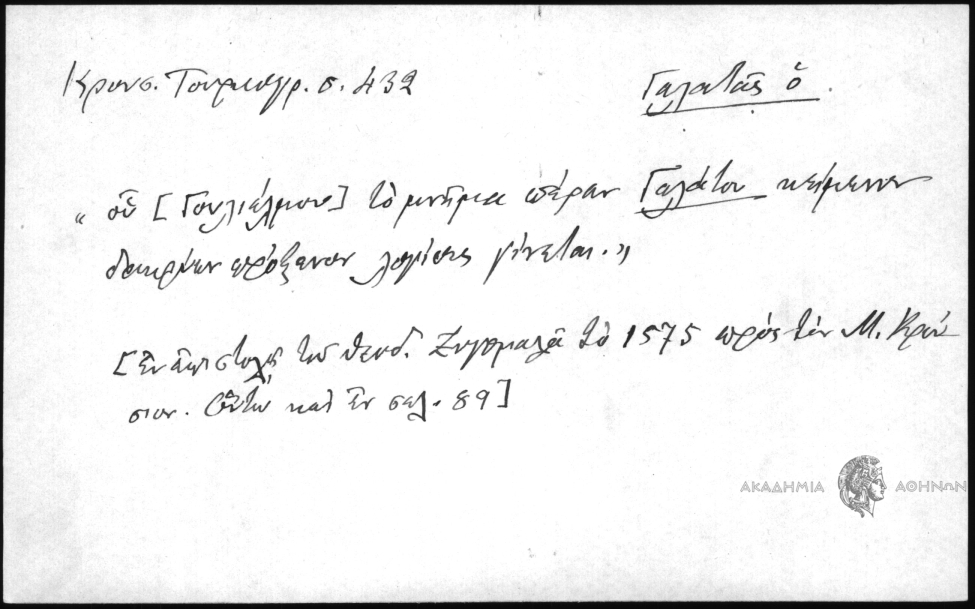 Κρουσ. Τουρκογρ. σ. 432
Γαλατᾶς ὁ.
"οὗ [Γουλιέλμου] τὸ μνῆμα πέραν Γαλάτου κείμενον
δακρύων πρόξενον λογίοις γίνεται."
[Ἐν ἐπιστολῇ τοῦ Θεοδ. Ζυγομαλᾶ τὸ 1575 πρὸς τὸν Μ. Κρού
σιον. Οὕτω καὶ ἐν σελ. 89]
ΑΚΑΔΗΜΙΑ ΑΘΗΝΩΝ